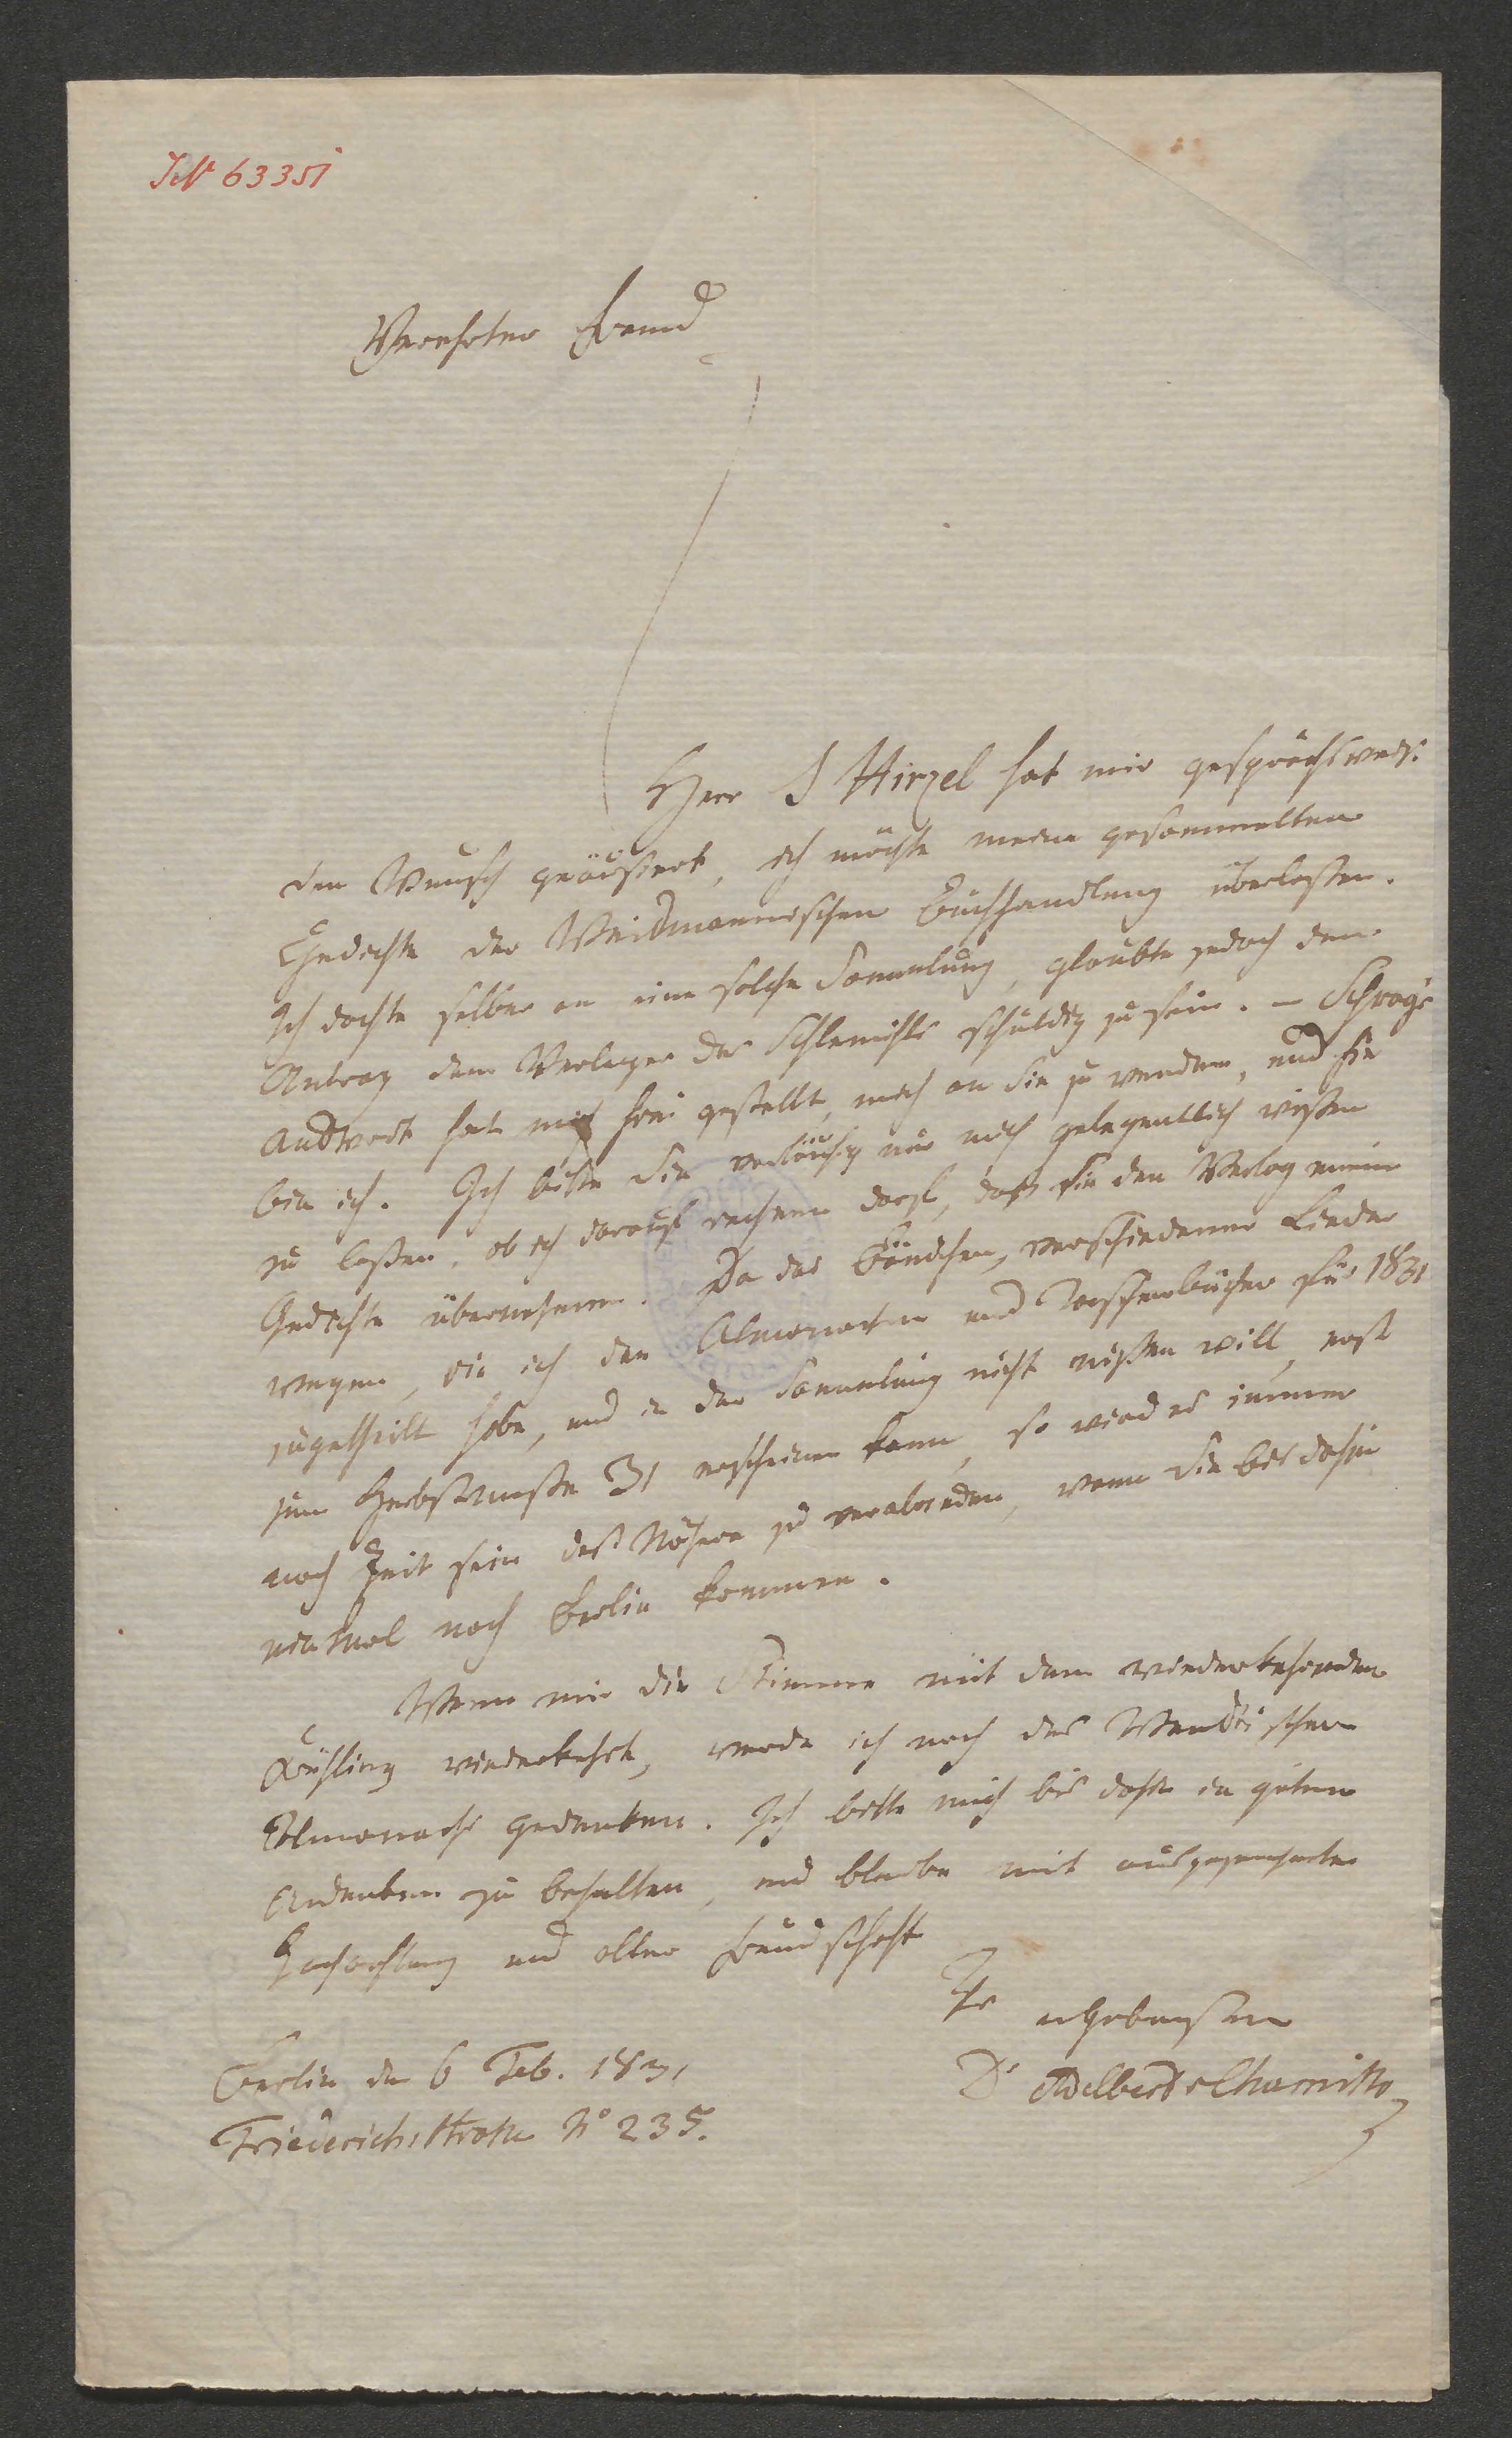 IN 63351
Verehrter Freund
Herr S Hirzel hat mir gesprächsweis.
den Wunsch geäußert, ich möchte meine gesammelten
Gedichte der Weidmannischen Buchhandlung überlaßen.
Ich dachte selber an eine solche Sammlung, glaubte jedoch den
Antrag dem Verleger des Schlemihls schuldig zu sein. – Schrag's
Antwort hat mich frei gestellt, mich an Sie zu wenden, und hie
bin ich. Ich bitte Sie vorläufig nur mich gelegentlich wißen
zu laßen, ob ich darauf rechnen darf, daß Sie den Verlag meiner
Gedichte übernehmen. Da das Bändchen, verschiedener Lieder
wegen, die ich den Almanachen und Taschenbücher für 1831
zugetheilt habe, und in der Sammlung nicht mißen will, erst
zum Herbstmeße 31 erscheinen kann, so wird es immer
noch Zeit sein das Nähere zu verabreden, wenn Sie bis dahin
ein Mal nach Berlin kommen.
Wenn mir die Stimme mit dem wiederkehrenden
Frühling wiederkehrt, werde ich noch des Wendtschen
Almanachs gedenken. Ich bitte mich bis dahin in gutem
Andenken zu behalten, und bleibe mit ausgezeichneter
Hochachtung und aller Freundschaft
Ihr ergebenster
Dr Adelbert v Chamisso
Berlin den 6 Feb. 1831
Friederichsstrasse No 235.